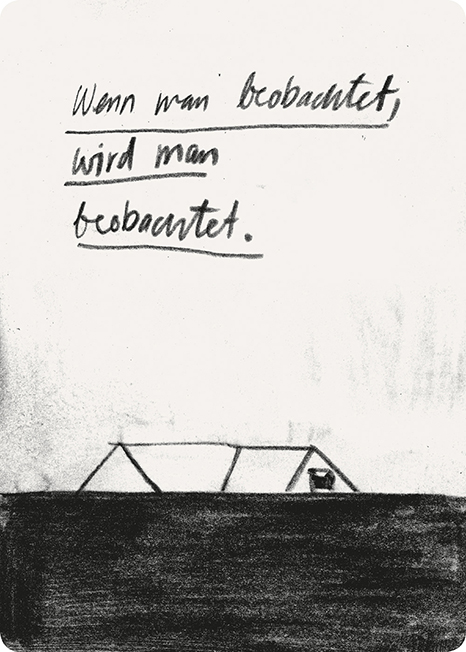 Wenn man beobachtet,
wird man
beobachtet.